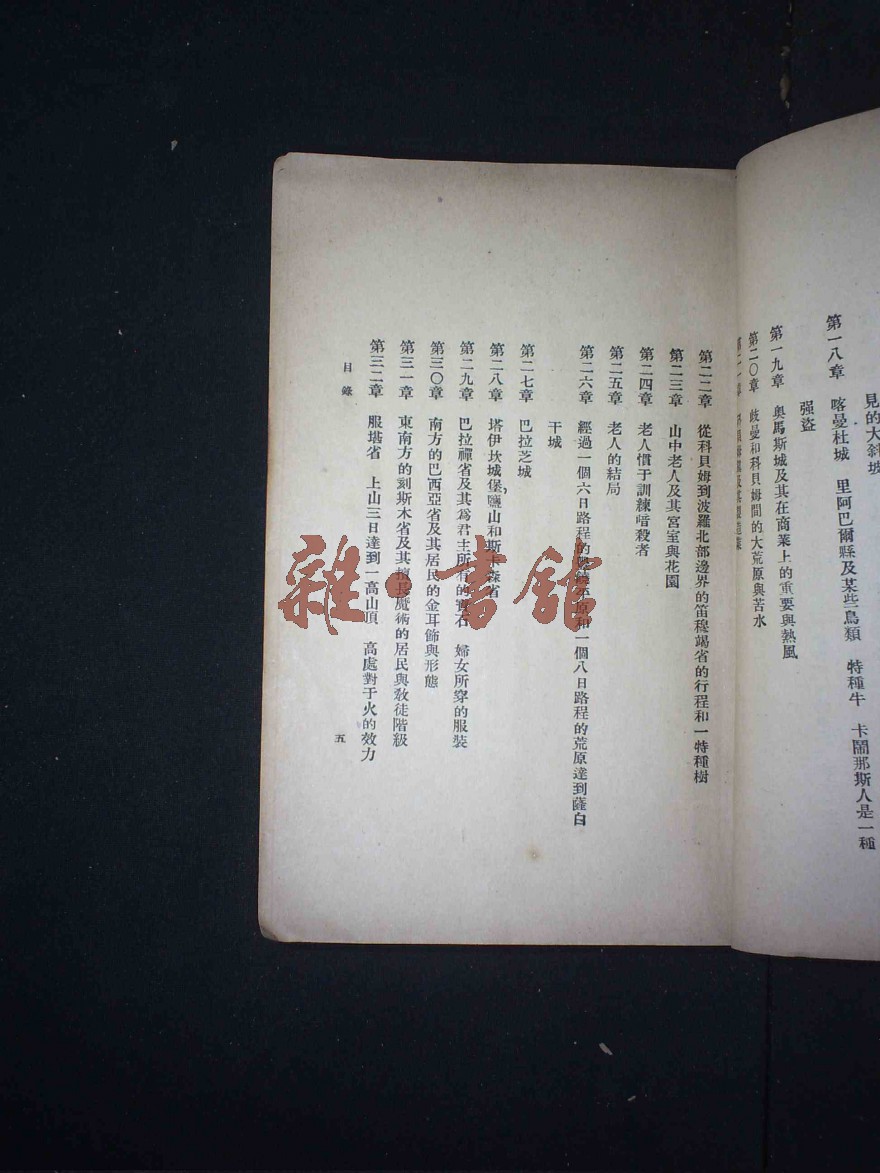 見的大斜坡
第一八章 喀曼杜城 里阿巴爾縣及某些鳥類 特種牛 卡鬧那斯人是一種
强盜
第一九章 奥馬斯城及其在商業上的重要與熱風
第二〇章 歧曼和科貝姆間的大荒原與苦水
第二二章 從科貝姆到波羅北部邊界的笛穆竭省的行程和一特種樹
第二三章 山中老人及其宮室與花園
第二四章 老人慣于訓練暗殺者
第二五章 老人的結局
第二六章 經過一個六日路程的 原和一個八日路程的荒原達到薩白
干城
第二七章 巴拉芝城
第二八章 塔伊坎城堡，鹽山和斯卡森省
第二九章 巴拉襌省及其爲君主所有的寶石 婦女所穿的服裝
第三〇章 南方的巴西亞省及其居民的金耳飾與形態
第三一章 東南方的刻斯木省及其擅長魔術的居民與教徒階級
第三二章 服堪省 上山三日達到一高山頂 高處對于火的效力
目錄
五
雜·書館